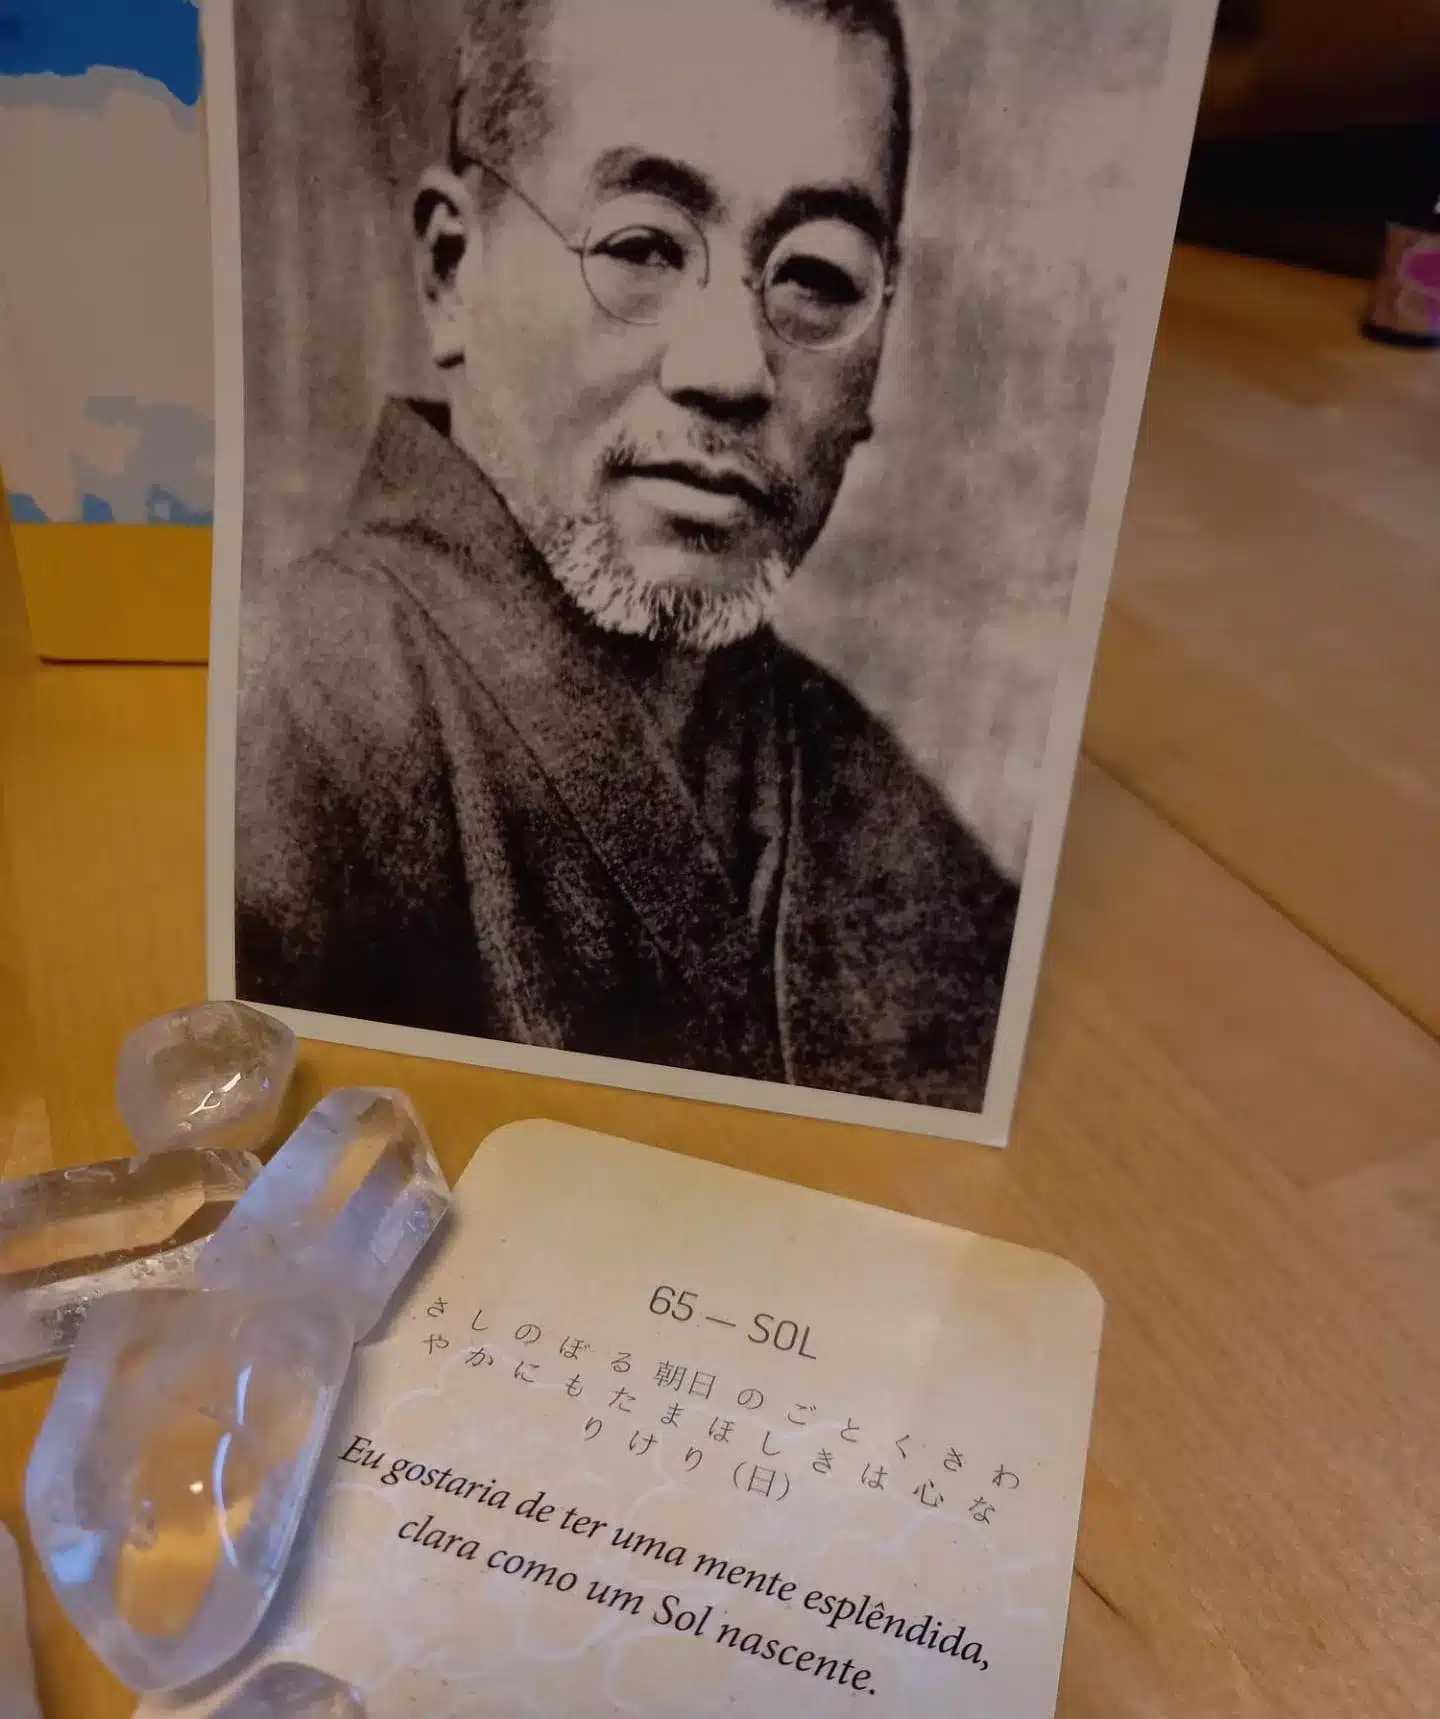 65 – SOL
さしのぼる朝日のごとくさわ
やかにもたまほしきは心な
りけり（日）
Eu gostaria de ter uma mente esplêndida,
clara como um Sol nascente.